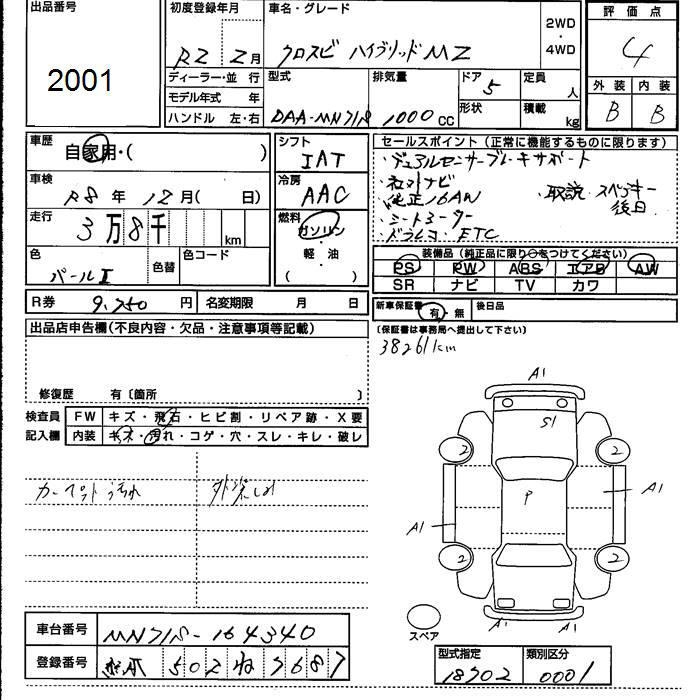 出品番号
2001
初度登録年月
R2 年 2月
車名・グレード
クロスビ ハイブリッドMZ
2WD
・
4WD
評価点
4
ディーラー・並 行
モデル年式 年
ハンドル 左・右
型式
DAA-MN71S
排気量
1000cc
ドア 5
形状
定員
人
積載
kg
外装 内装
B B
車歴
自家用・( )
車検
R8年 12月( 日)
走行
3万8千 km
色
パールⅡ
色替
色コード
シフト
IAT
冷房
AAC
燃料
ガソリン
・
軽・油
( )
セールスポイント(正常に機能するものに限ります)
・デュアルセンサーブレーキサポート
・社外ナビ
・純正16AW
・シートヒーター
・ドラレコ・ETC
・取説・スペアキー
後日
装備品(純正品に限り○をつけてください)
PS PW ABS エアB AW
SR ナビ TV カワ
R券 9,750 円 名変期限 月 日
新車保証書 有・無 後日品
(保証書は事務局へ提出して下さい)
38261km
出品店申告欄(不良内容・欠品・注意事項等記載)
修復歴 有〔箇所 〕
検査員
記入欄
FW キズ・飛石・ヒビ割・リペア跡・X要
内装 キズ・汚れ・コゲ・穴・スレ・キレ・破レ
カーペット汚れ
A1
S1
2 2
P
A1
A1
2 2
A1 A1
スペア
車台番号 MN71S-164340
登録番号 502 ね 7687
型式指定 類別区分
18702 0001